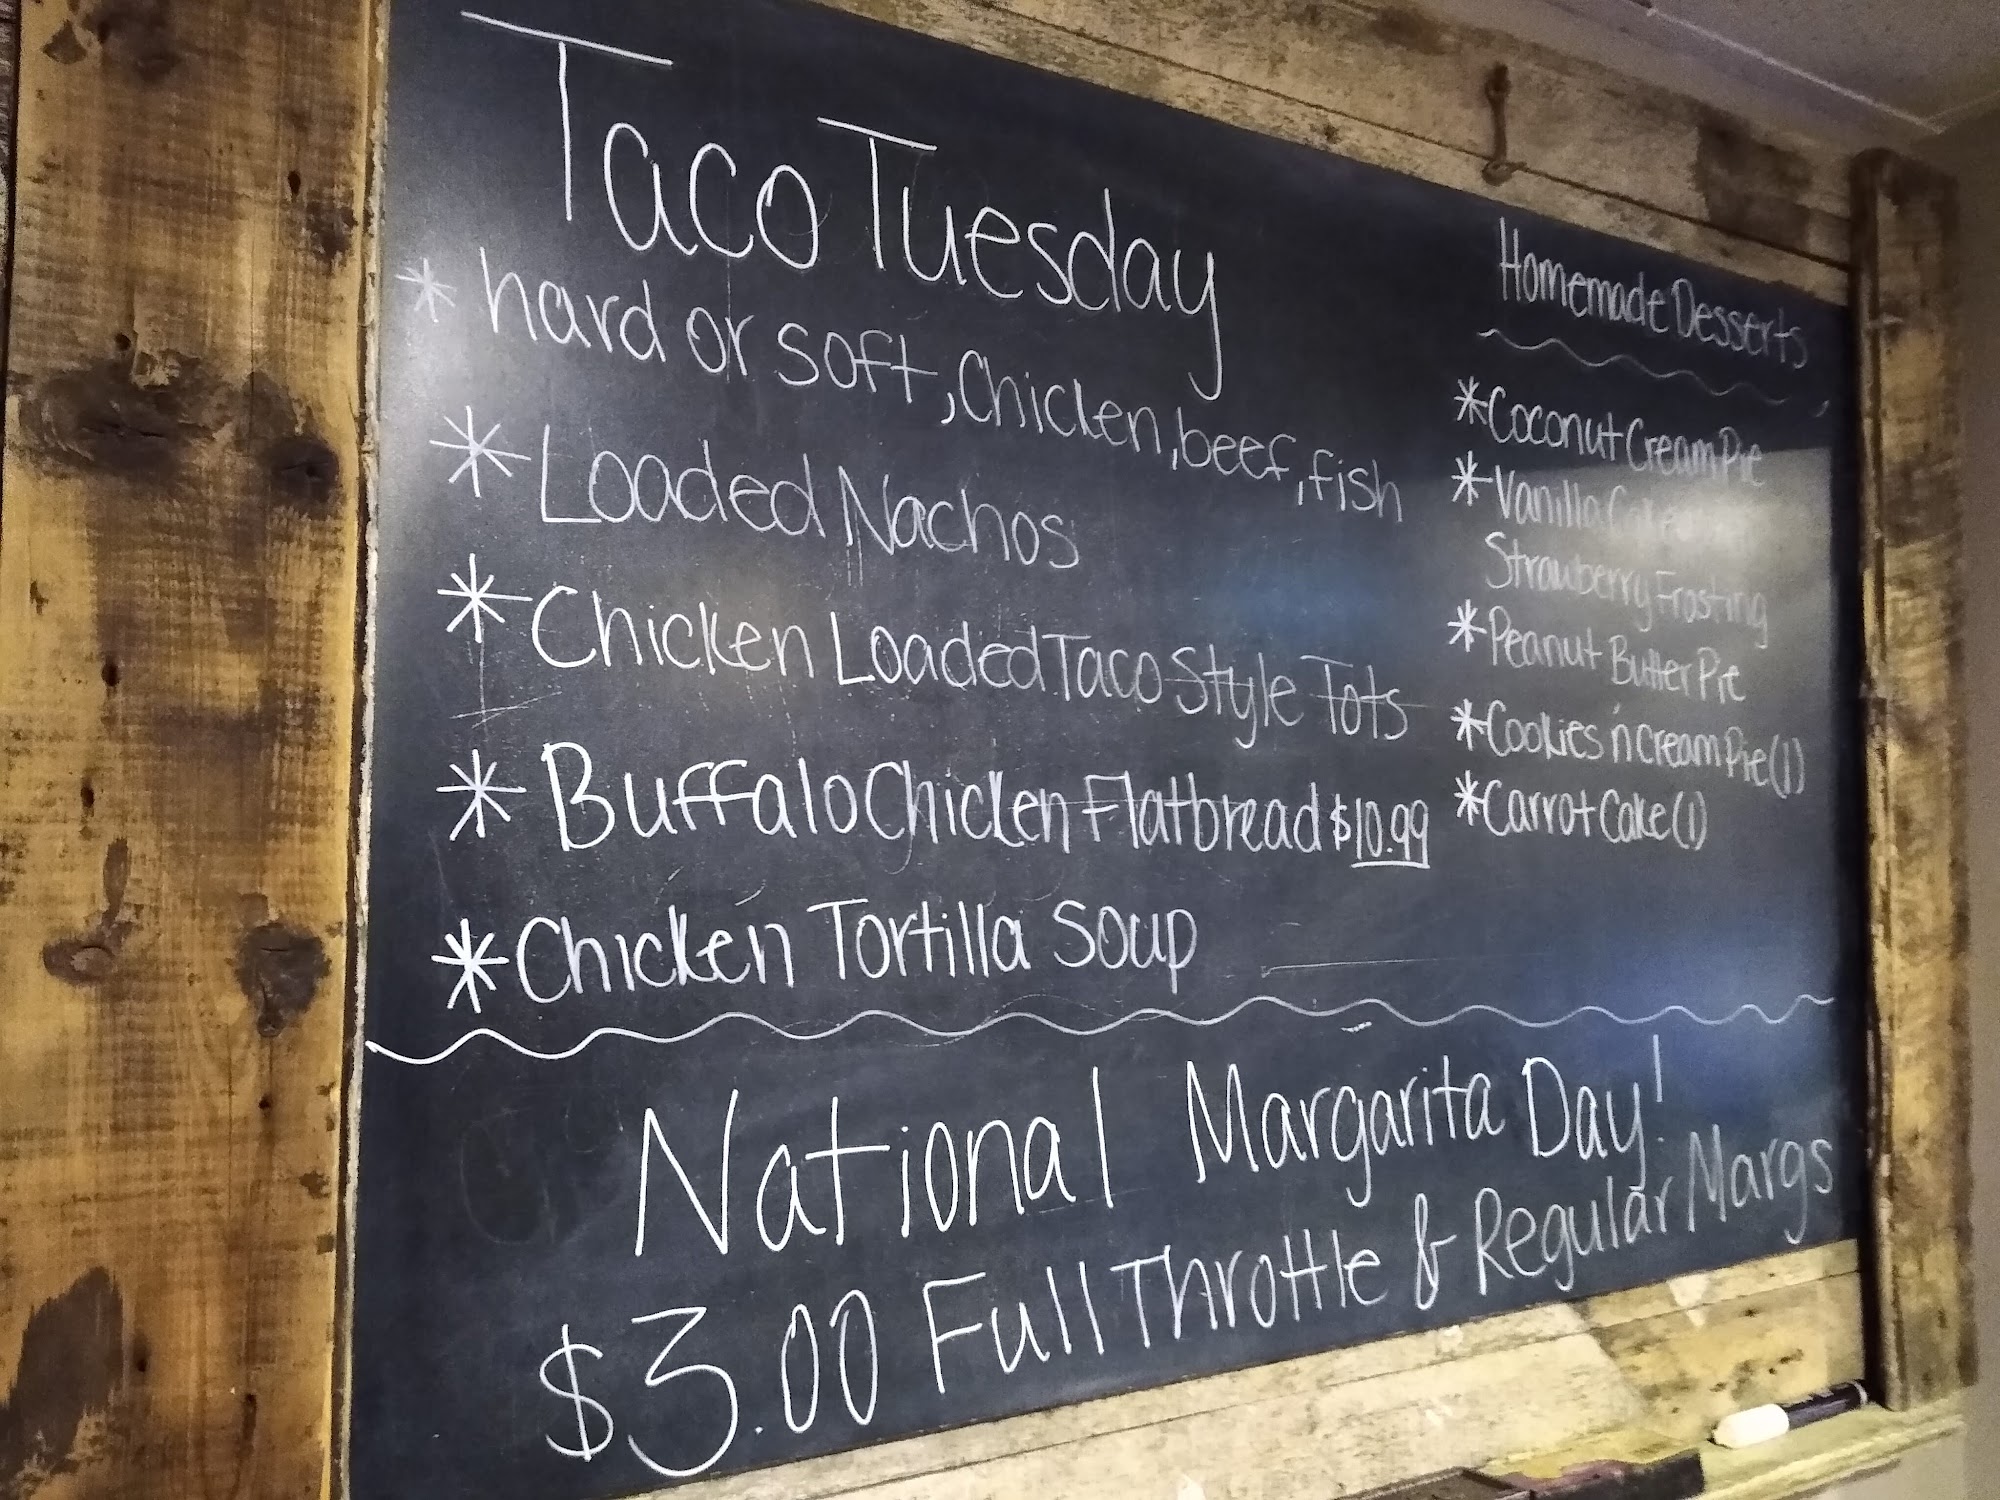 Taco Tuesday
* hard or soft, Chicken, beef, fish
* Loaded Nachos
* Chicken Loaded Taco Style Tots
* Buffalo Chicken Flatbread $10.99
* Chicken Tortilla Soup
Homemade Desserts
* Coconut Cream Pie
* Vanilla
Strawberry Frosting
* Peanut Butter Pie
* Cookies 'n Cream Pie (1)
* Carrot Cake (1)
National Margarita Day!
$3.00 Full Throttle & Regular Margs